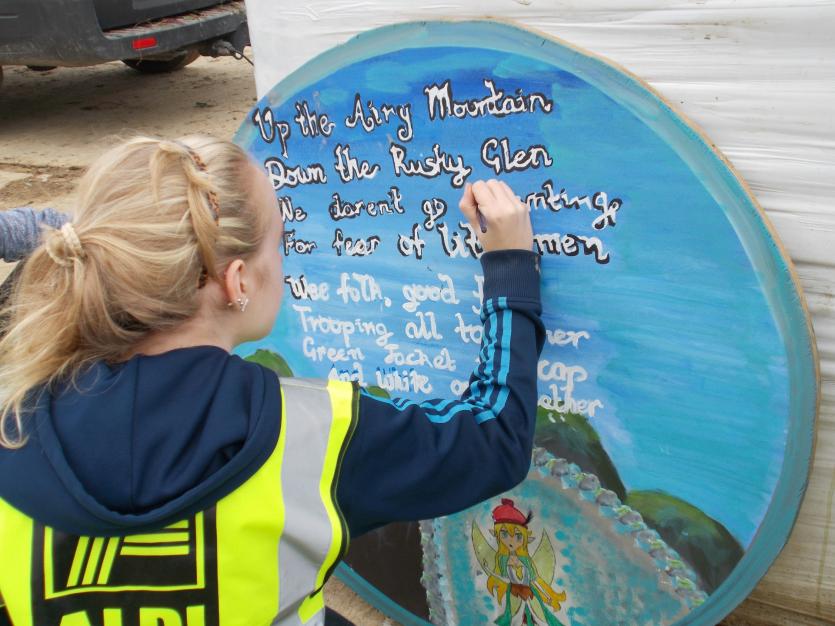 Up the Airy Mountain
Down the Rushy Glen
We darent go
For fear of men
Wee folk, good
Trooping all
Green Jacket cap
And white
ALDI